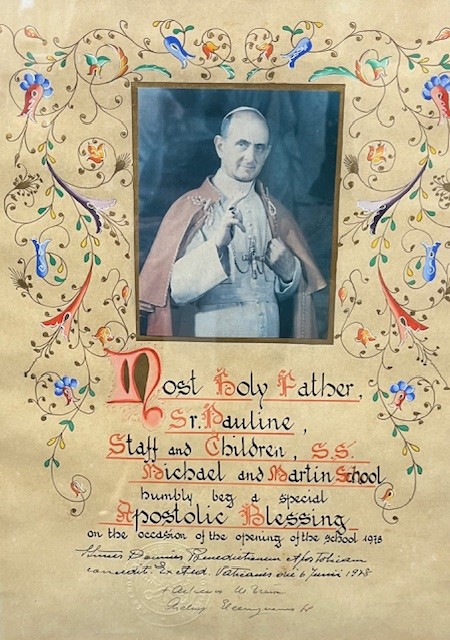 Most Holy Father,
Sr. Pauline,
Staff and Children, S.S.
Michael and Martin School
humbly beg a special
Apostolic Blessing
on the occasion of the opening of the school 1978
Benedictionem Apostolicam
Vaticanis die 6 Junii 1978